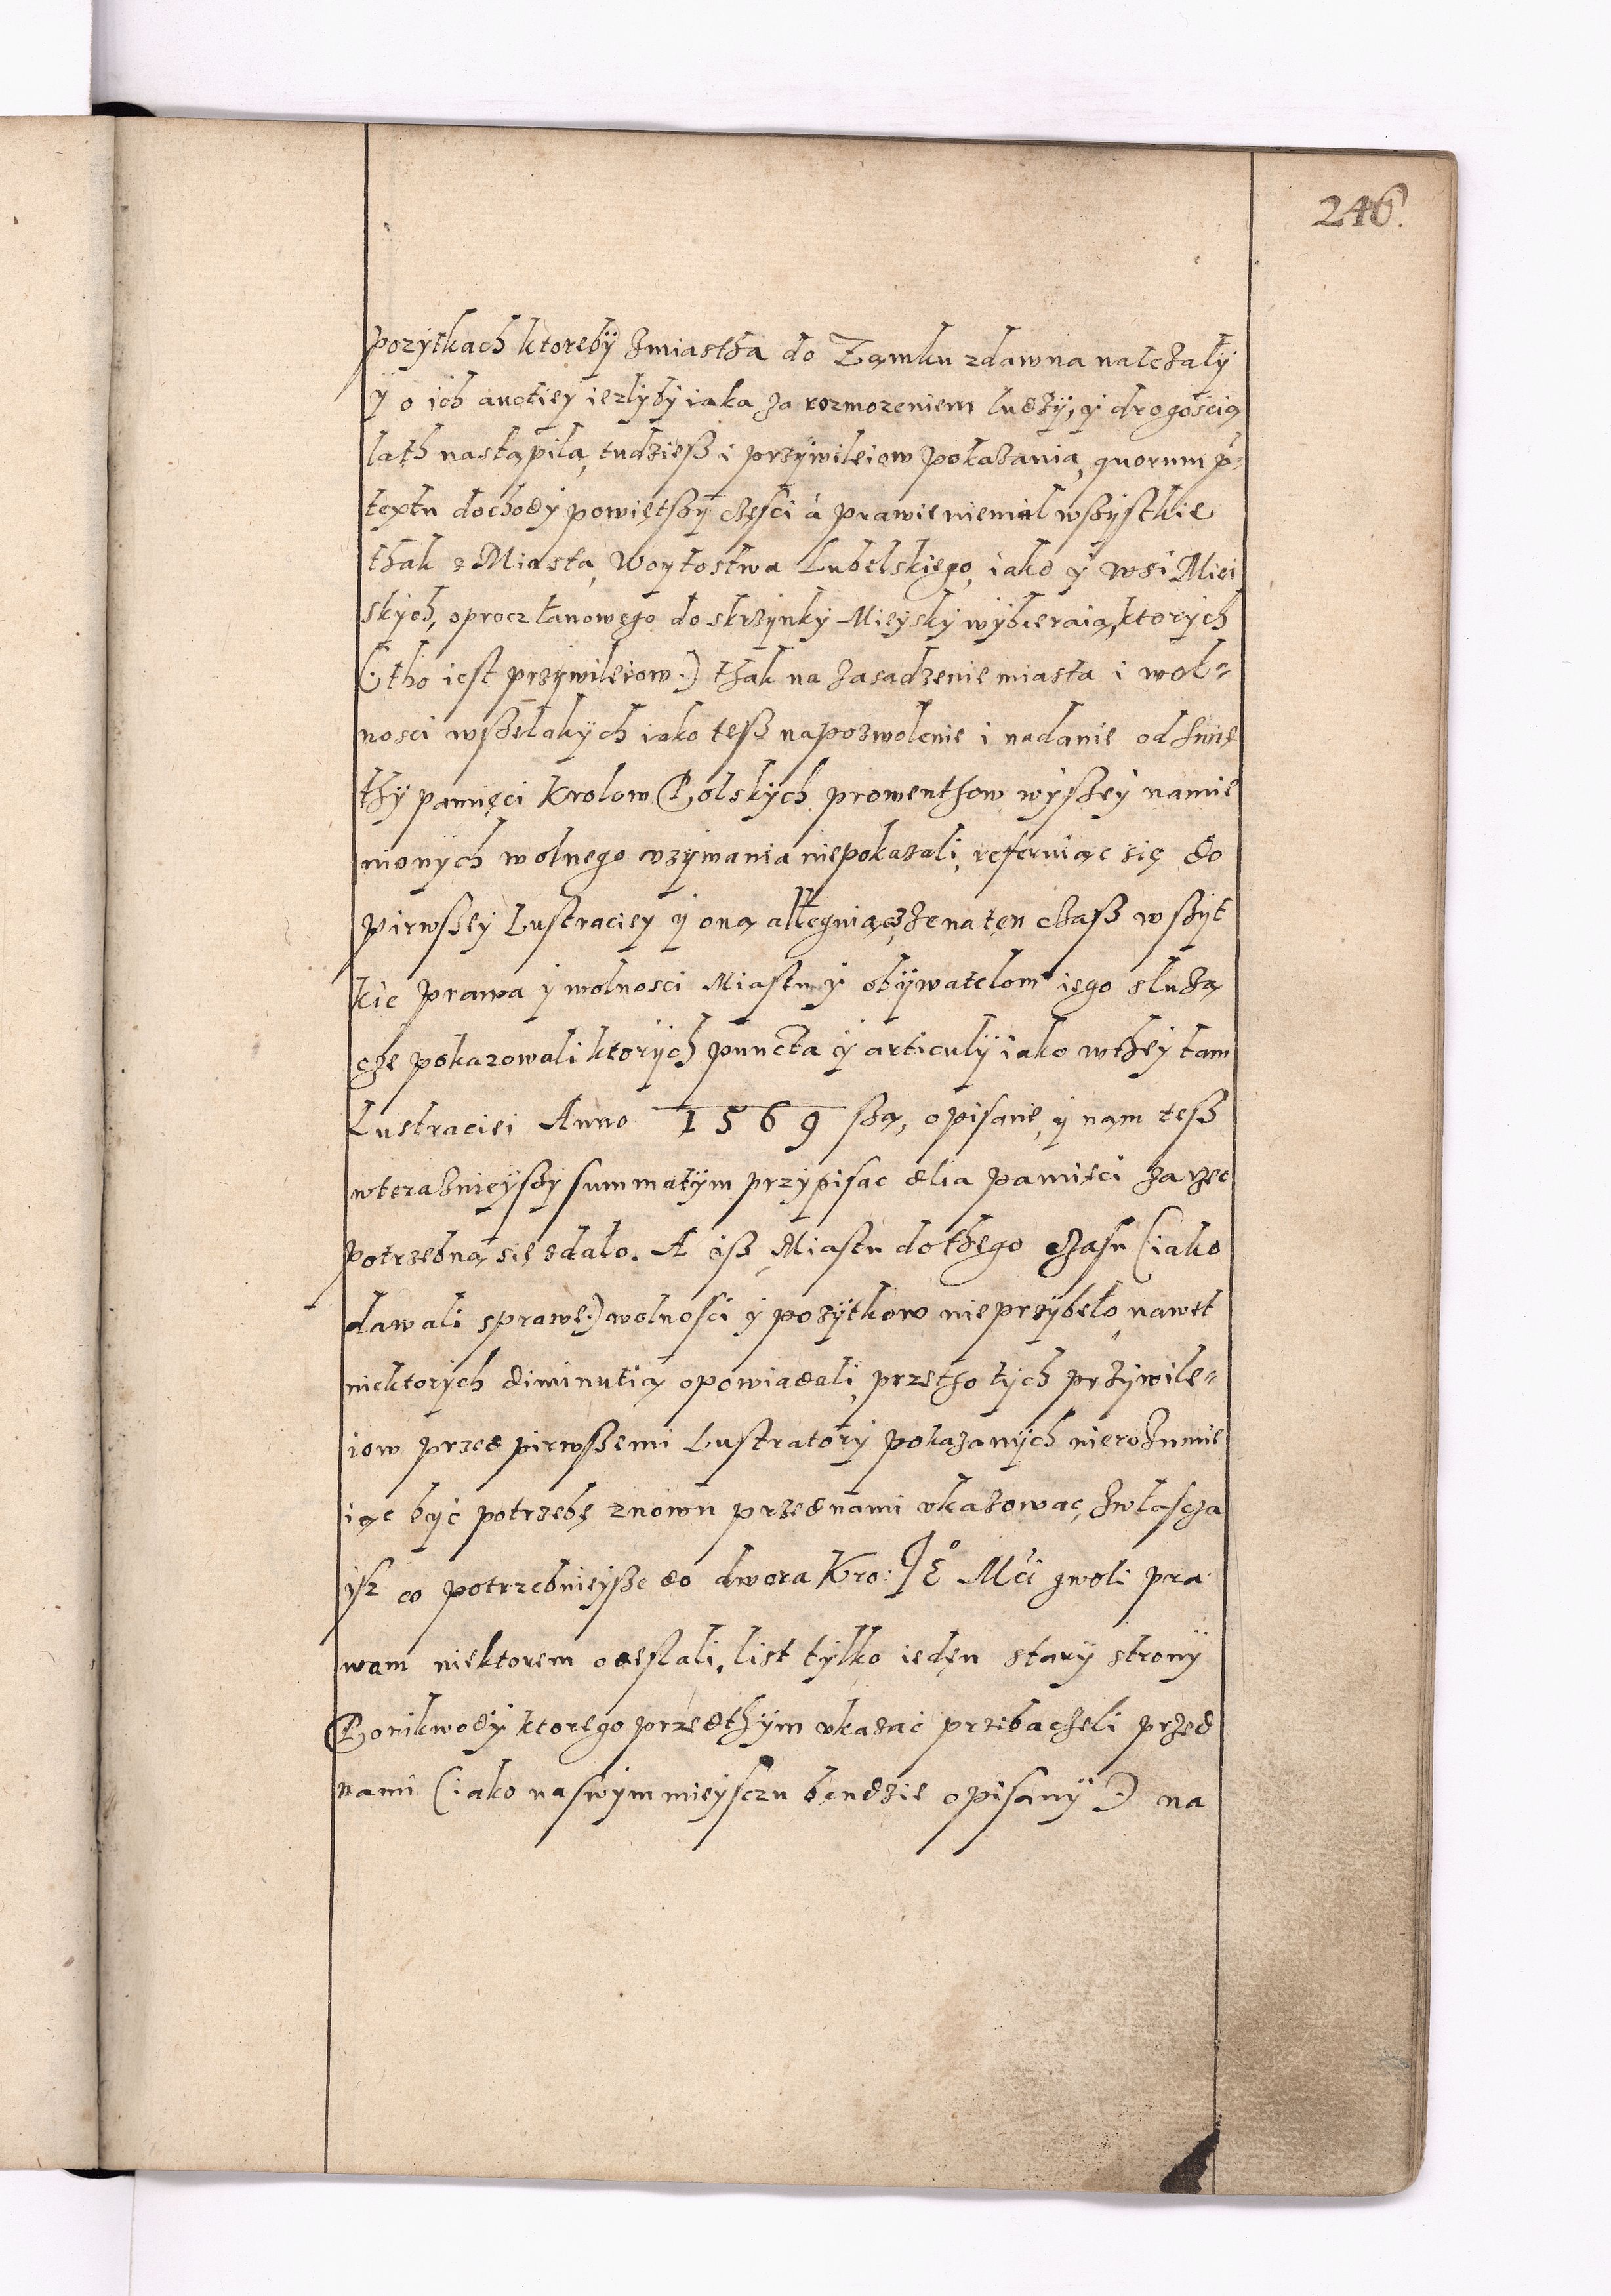 246.
pozytkach ktoreby zmiastha do Zamku zdawna należały
y o ich auctiey iezlyby iaka za rozmozeniem ludzy, y drogoscią
lath nastąpila, tudziesz i przywileiow pokazania, quorum p̱-
textu dochody powiętszy częsci à prawie niemal wszystkie
thak z Miasta, Woytostwa Lubelskiego, iako y wsi Miei
skych, oprocz łanowego do skrzynky Mieysky wybieraią, ktorych
(: tho iest przywileiow :) thak na zasadzenie miasta i wol-
nosci wszelakych iako tesz na pozwolenie i nadanie od swię
thy pamięci Krolow Polskych prowenthow wyszey namie
nionych wolnego vzywania niepokazali, referuiąc się do
pirwszey Lustraciey y oną alleguiącz, że na ten czasz wszyt
kie prawa y wolnosci Miastu y obywatelom iego służą
cze pokazowali ktorych puncta y articuly iako w they tam
Lustraciei Anno 1569 są, opisane, y nam tesz
w teraznieyszy summatym przypisac dlia pamięci za rzec
potrzebną się zdało. A isz Miastu do thego czasu (: iako
dawali sprawę :) wolnosci y pozytkow nieprzybeło, nawet
niektorych diminutią opowiadali, przetho tych przywile-
iow przed pirwszemi Lustratory pokazanych nierozumie
iąc być potrzebę znowu przed nami vkazować, zwłascza
isz co potrzebnieysze do dwora Kro: Jº Mći gwoli pra
wam niektorem odesłali, list tylko ieden stary strony
Ponikwody ktorego przedthym vkazać przebaczeli przed
nami (: iako na swym mieysczu będzie opisany :) na